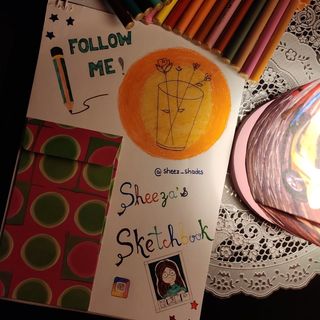 FOLLOW
ME!
@sheez_shades
Sheeza's
Sketchbook